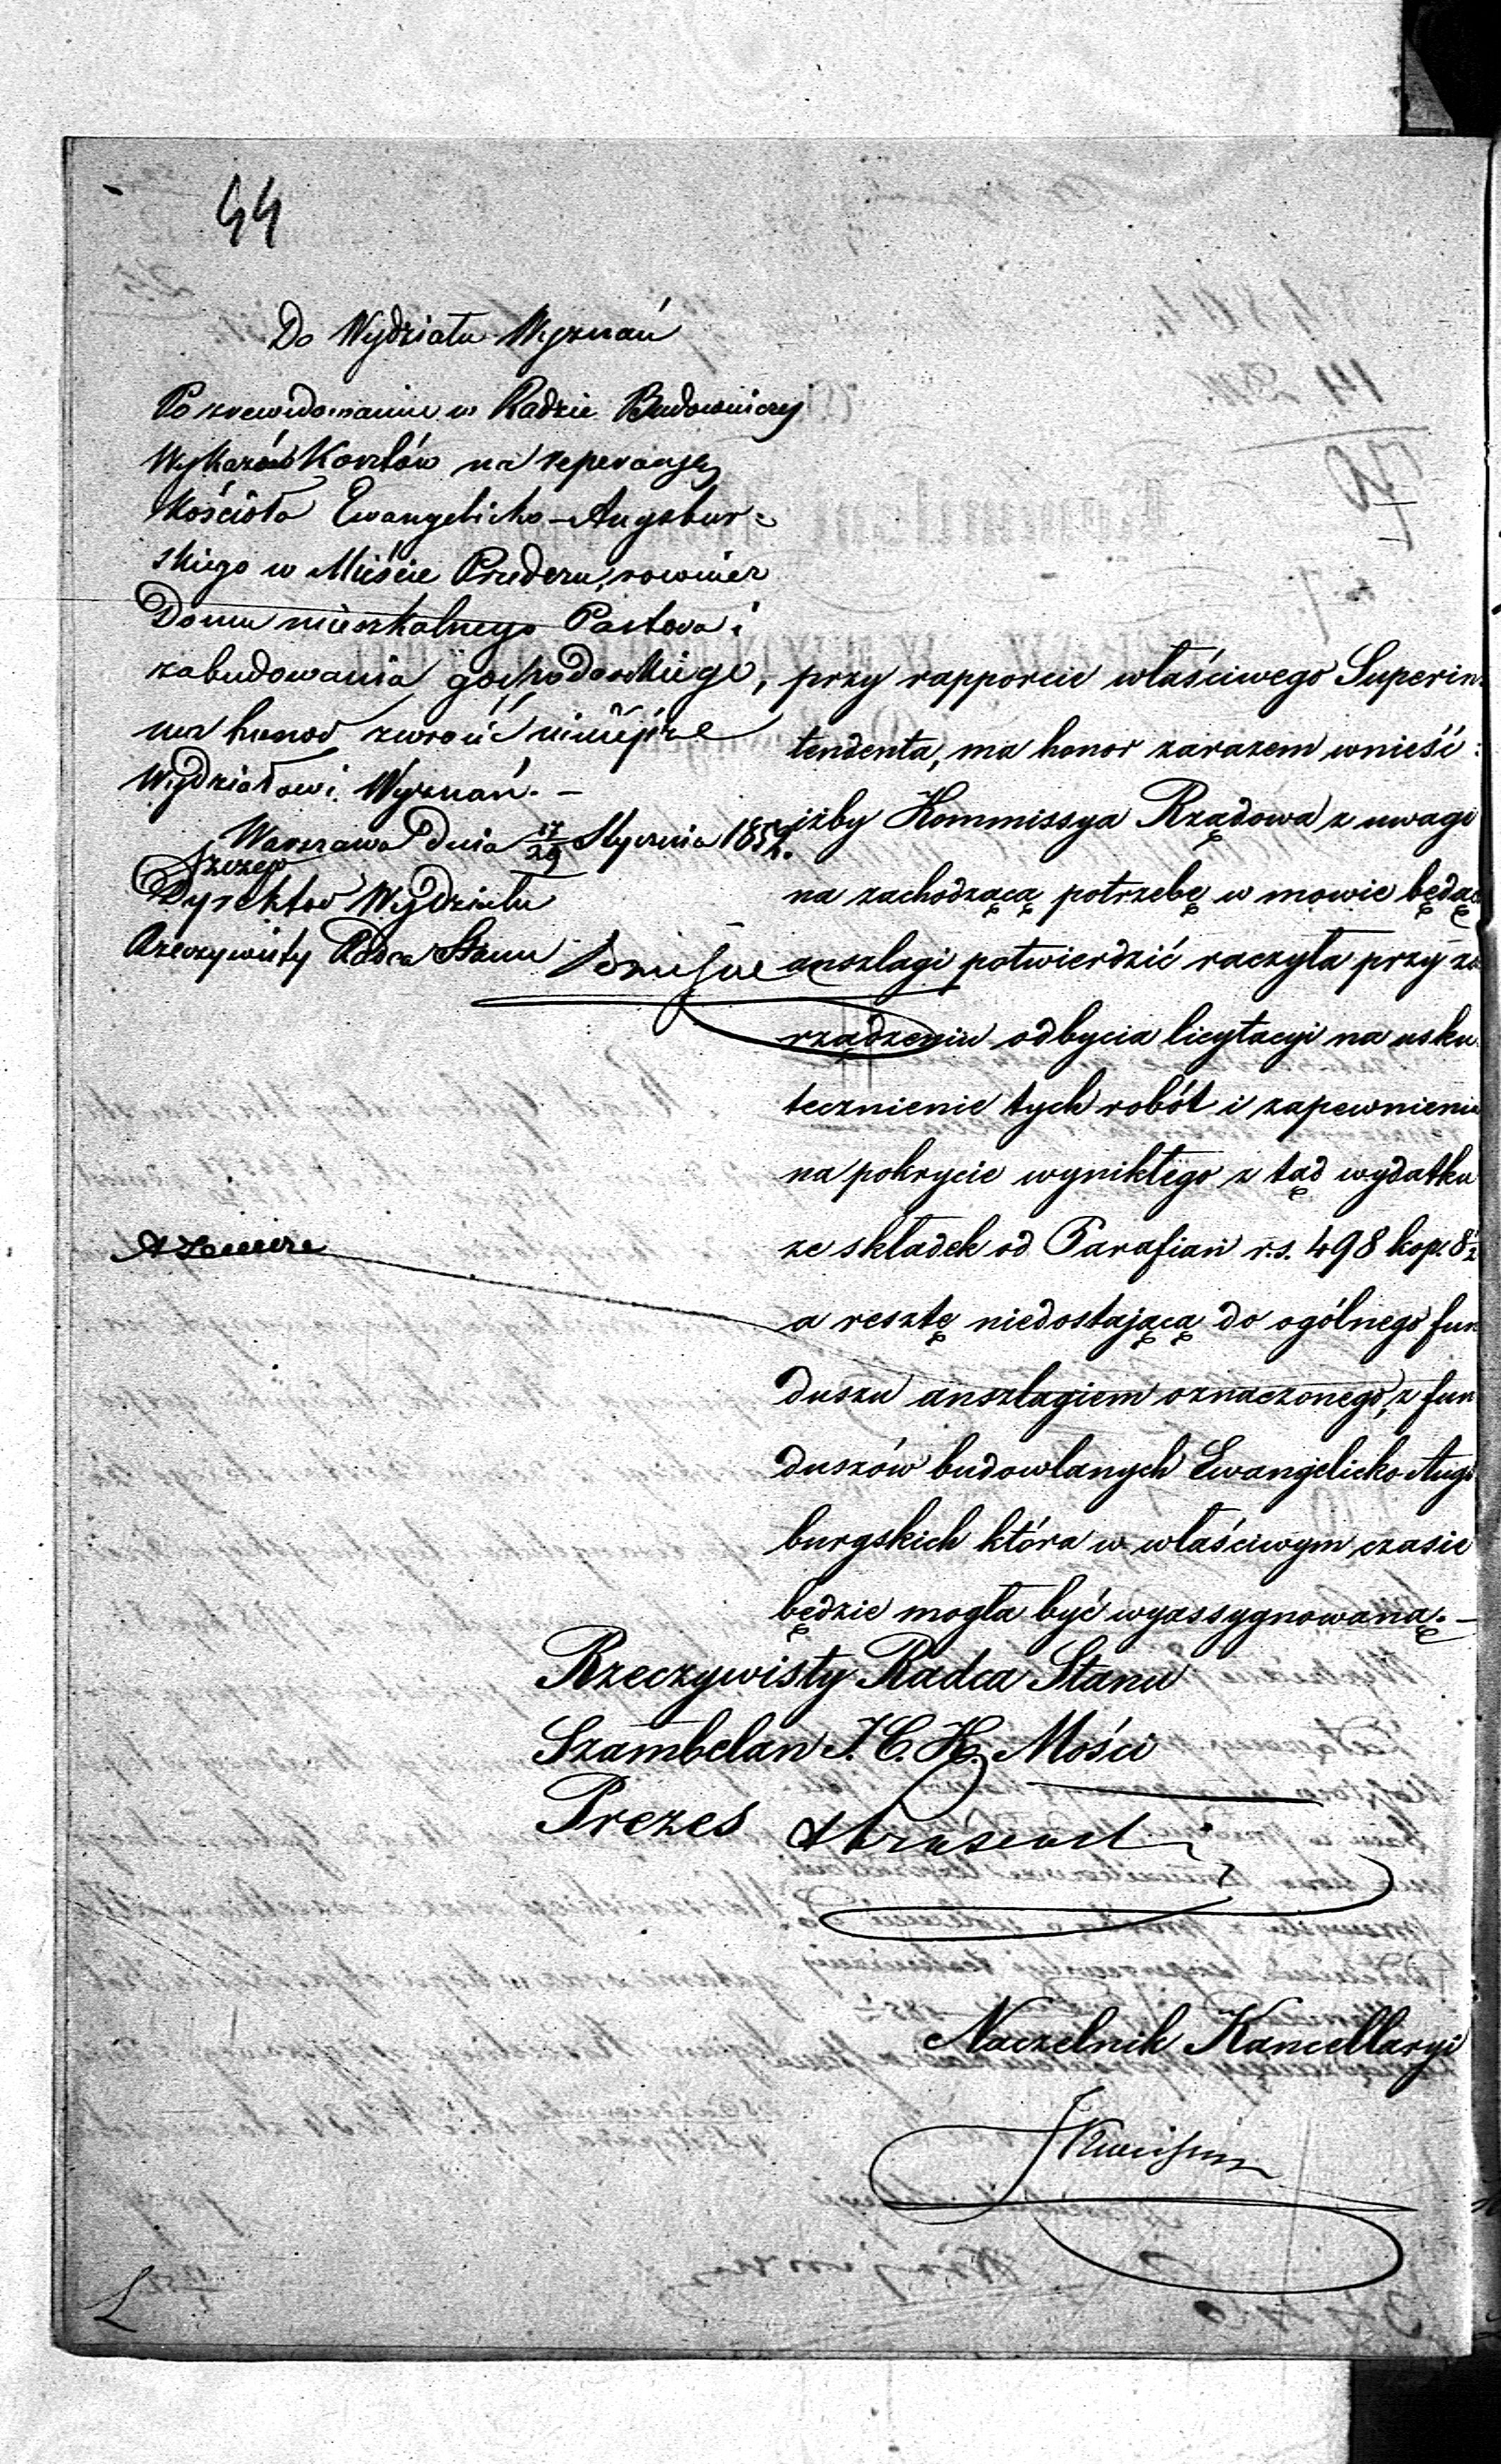 44
Do Wydziału Wyznań
Po zrewidowaniu w Radzie Budowniczej
Wykazów Kosztów na reperacyę
Kościoła Ewangelicko-Augsbur-
skiego w Mieście Przedczu, rownież
Domu mieszkalnego Pastora i
zabudowania gospodarskiego,
ma honor zwrócić niniejsze
Wydziałowi Wyznań. —
Warszawa dnia 17/29 Stycznia 1852.
Dyrektor Wydziału
Rzeczywisty Radca Stanu
przy rapporcie właściwego Superin
tendenta, ma honor zarazem wnieść:
iżby Kommissya Rządowa z uwagi
na zachodzącą potrzebę w mowie będące
anszlagi potwierdzić raczyła przy za
rządzeniu odbycia licytacyi na usku
tecznienie tych robót i zapewnieniu
na pokrycie wynikłego z tąd wydatku
ze składek od Parafian r.s. 498 kop. 8½
a resztę niedostającą do ogólnego fun
duszu anszlagiem oznaczonego, z fun
duszów budowlanych Ewangelicko Augs
burgskich która w właściwym czasie
będzie mogła być wyassygnowaną. —
Rzeczywisty Radca Stanu
Szambelan J. C. K. Mości
Prezes
Naczelnik Kancellaryi